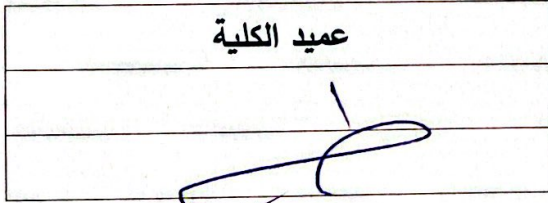 عميد الكلية